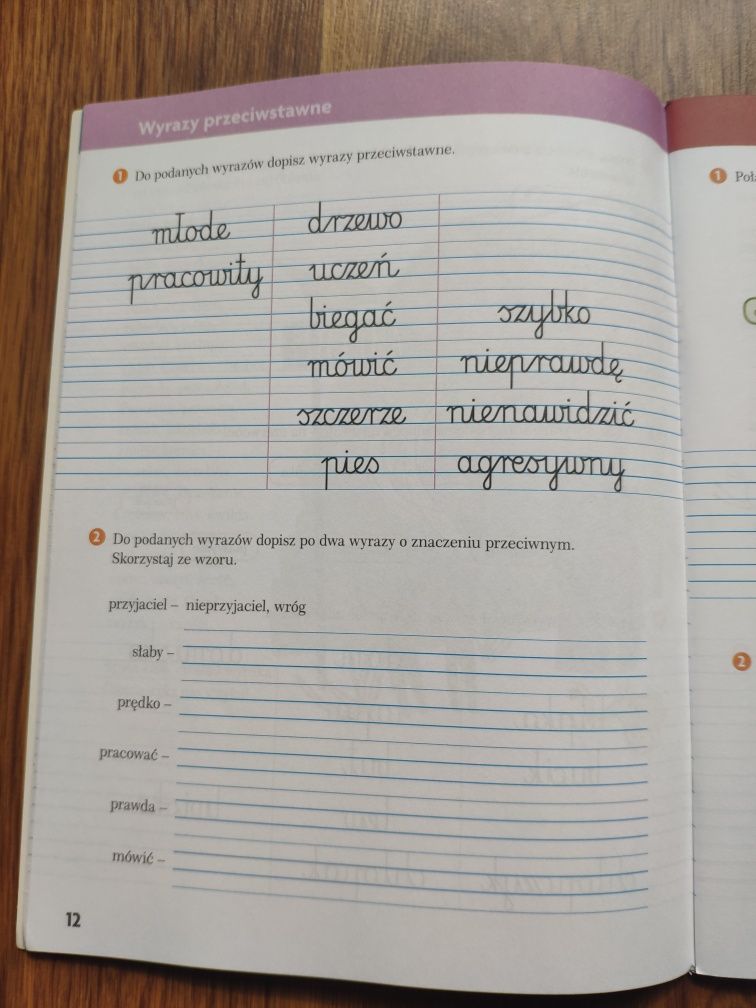 Wyrazy przeciwstawne
1 Do podanych wyrazów dopisz wyrazy przeciwstawne.
młode drzewo
pracowity uczeń
biegać szybko
mówić nieprawdę
szczerze nienawidzić
pies agresywny
2 Do podanych wyrazów dopisz po dwa wyrazy o znaczeniu przeciwnym.
Skorzystaj ze wzoru.
przyjaciel – nieprzyjaciel, wróg
słaby –
prędko –
pracować –
prawda –
mówić –
12
1
2